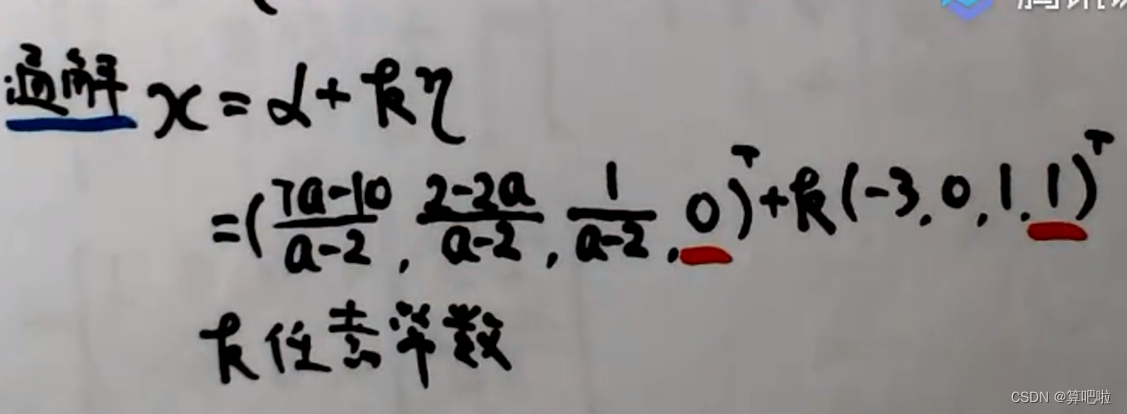 通解 x = α + kη
= ( (7a-10)/(a-2), (2-2a)/(a-2), 1/(a-2), 0 )ᵀ + k(-3, 0, 1, 1)ᵀ
k任意常数
CSDN @算吧啦